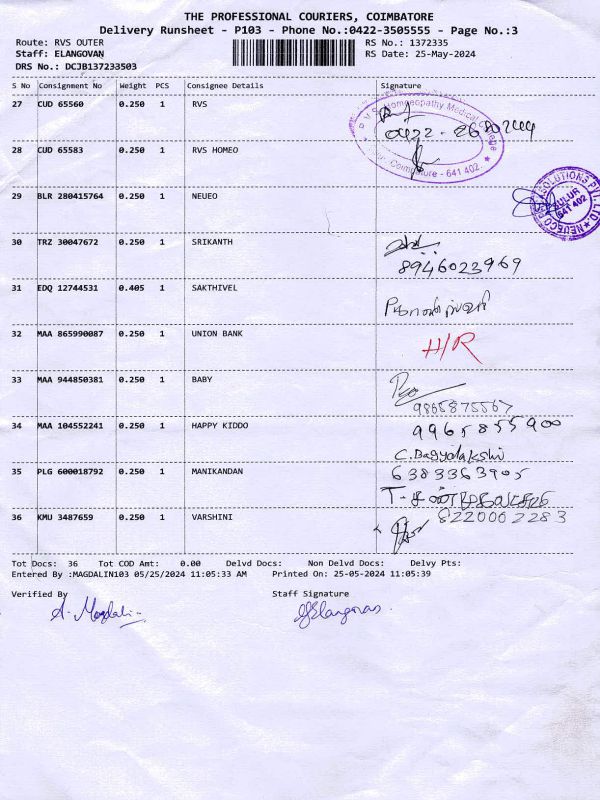 THE PROFESSIONAL COURIERS, COIMBATORE
Delivery Runsheet - P103 - Phone No.:0422-3505555 - Page No.:3
Route: RVS OUTER RS No.: 1372335
Staff: ELANGOVAN RS Date: 25-May-2024
DRS No.: DCJB137233503
S No Consignment No Weight PCS Consignee Details Signature
27 CUD 65560 0.250 1 RVS
RVS Homoeopathy Medical College
Sulur, Coimbatore - 641 402.
0422-2680244
28 CUD 65583 0.250 1 RVS HOMEO
29 BLR 280415764 0.250 1 NEUEO
SOLUTIONS PVT. LTD.
SULUR
641 402
30 TRZ 30047672 0.250 1 SRIKANTH
8946023969
31 EDQ 12744531 0.405 1 SAKTHIVEL
32 MAA 865990087 0.250 1 UNION BANK H/R
33 MAA 944850381 0.250 1 BABY
9865875567
34 MAA 104552241 0.250 1 HAPPY KIDDO 9965855900
C. Bagyalakshi
35 PLG 600018792 0.250 1 MANIKANDAN 6383363905
36 KMU 3487659 0.250 1 VARSHINI 8220002283
Tot Docs: 36 Tot COD Amt: 0.00 Delvd Docs: Non Delvd Docs: Delvy Pts:
Entered By :MAGDALIN103 05/25/2024 11:05:33 AM Printed On: 25-05-2024 11:05:39
Verified By Staff Signature
A. Magdalin Elangovan.